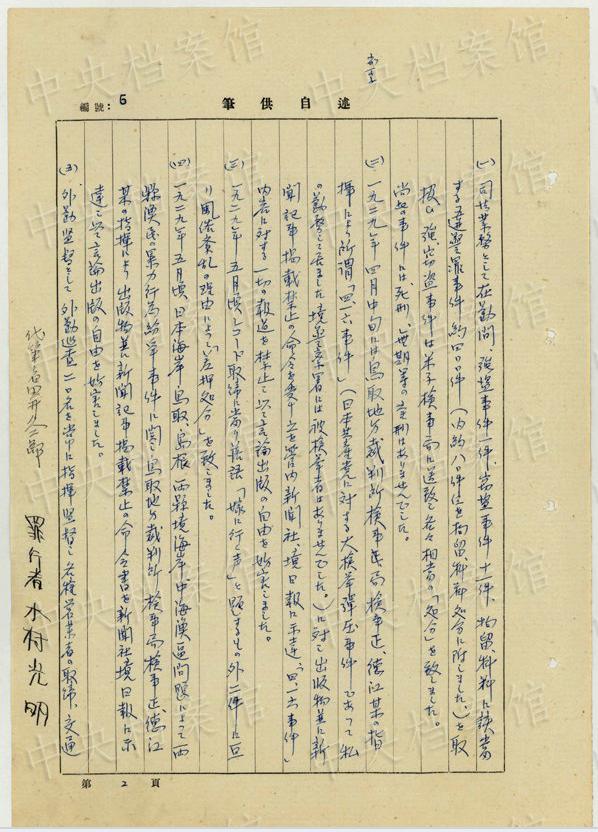 編號: 6
筆供自述
(一) 司法業督として在勤間、強盗事件一件、窃盗事件十一件、拘留、科料に該当
する違警罪事件約四〇件(内約八〇件位を拘留、科料処分に附しました。)を取
扱ひ、強、窃盗事件は米子検事局に送致し各々相当の「処分」を致しました。
尚右の事件には死刑、無期等の重刑はありませんでした。
(二) 一九二九年四月中旬には鳥取地方裁判所検事局検事正、德江某の指
揮により所謂「四、一六事件」(日本共産党に対する大検挙彈圧事件であつて私
の勤務して居ました境警察署には被検挙者はありませんでした。)に対し出版物並に新
聞記事掲載禁止の命令を受け之を管内新聞社、境日報に示達「四、一六事件」
内容に対する一切の報道を禁止し以て言論出版の自由を妨害しました。
(三) 一九二九年五月頃レコード取締に当り落語「嫁に行く声」と題するもの外二件に亘
り風俗紊乱の理由によつて「差押処分」を致しました。
(四) 一九二九年五月頃日本海岸鳥取、島根、両縣境海岸、中海漁區問題によつて両
縣漁民の暴力行為紛爭事件に関し鳥取地方裁判所検事局検事正德江
某の指揮により出版物並に新聞記事掲載禁止の命令書を新聞社境日報に示
達し以て言論出版の自由を妨害しました。
(五) 外勤監督として外勤巡查二〇名を常に指揮監督し各種営業者の取締、交通
代筆者
罪行者 木村光明
第 2 頁
中央档案馆